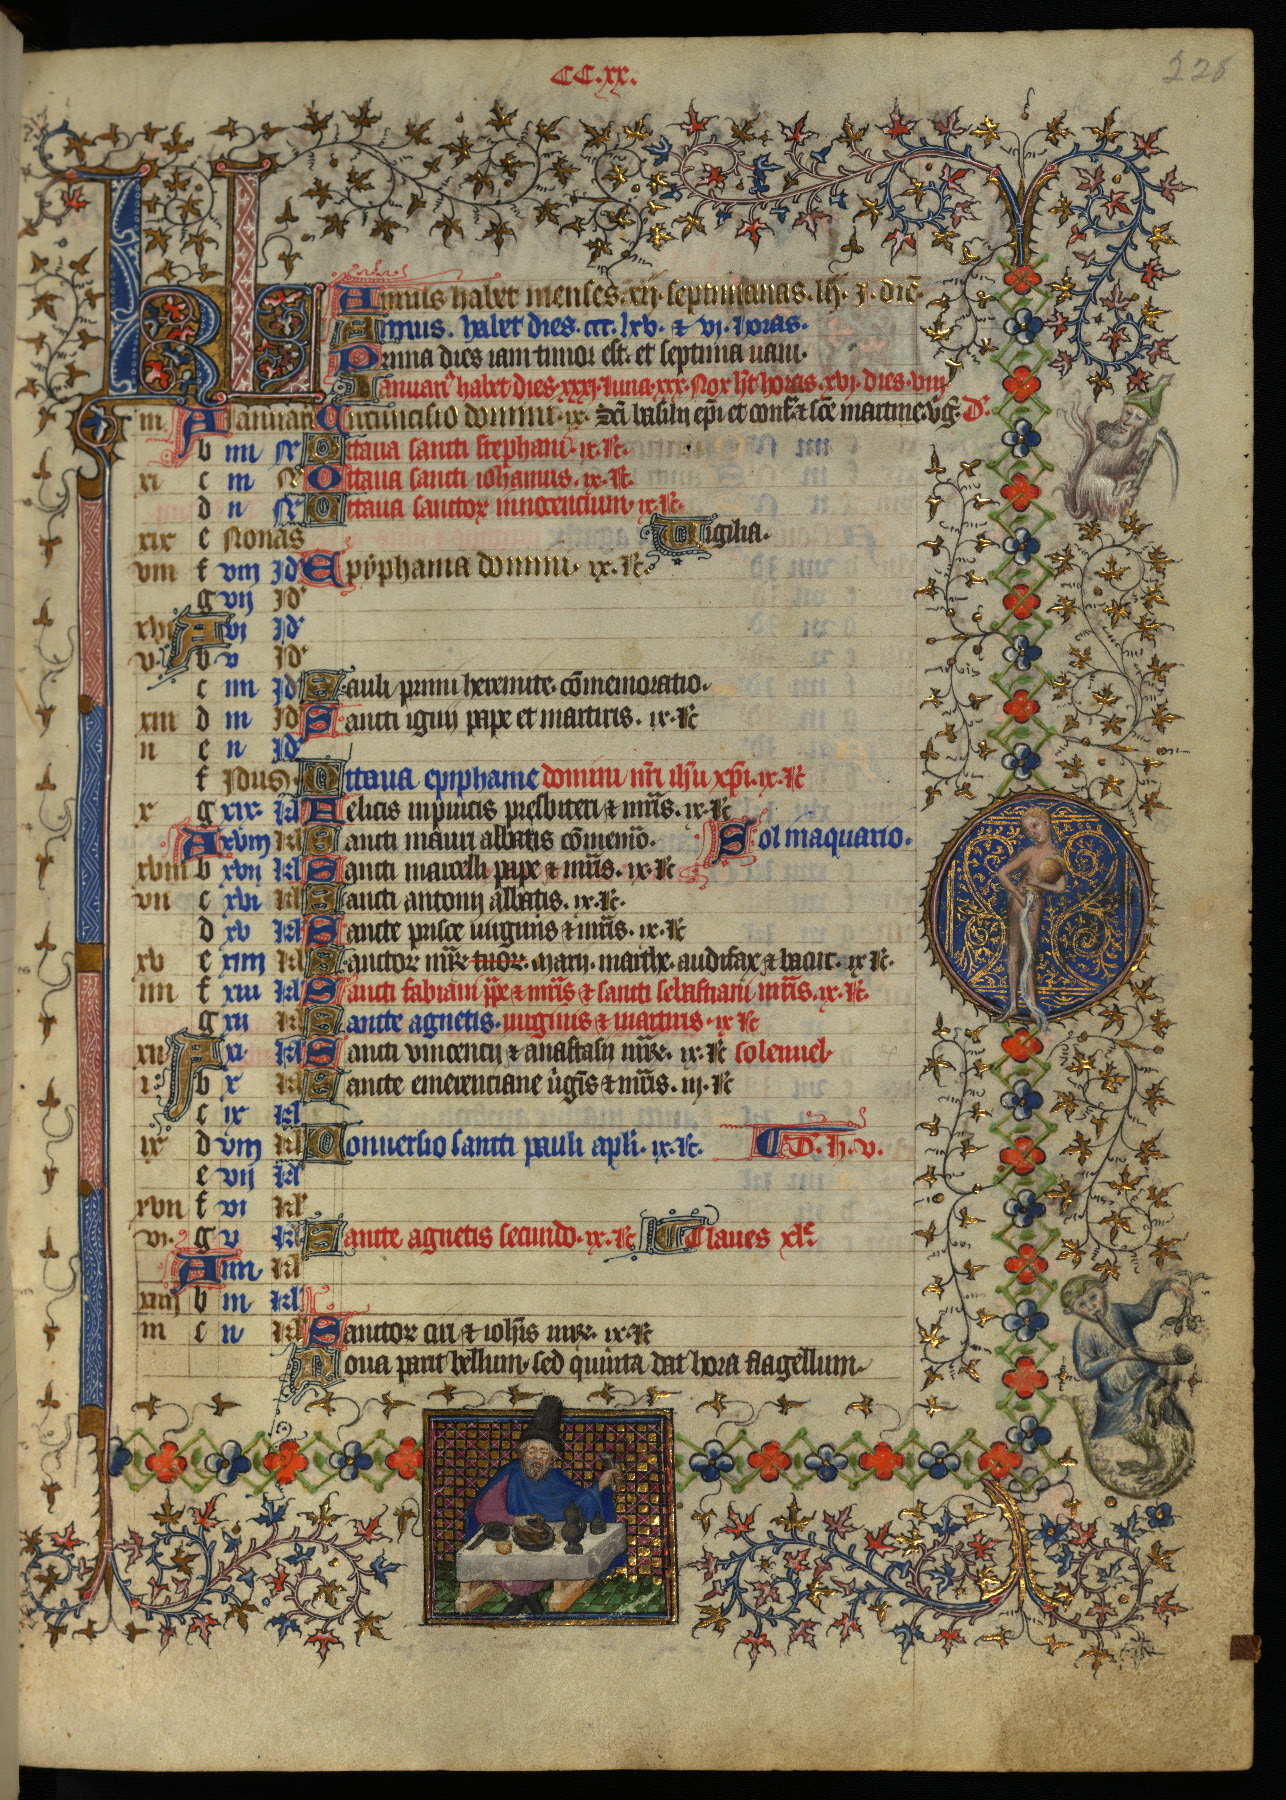 CC.xx.
228
KL
Annus habet menses. xij. septimanas. lij. j. diē.
Annus. habet dies. ccc. lxv. & vi. horas.
Prima dies iam timor est. et septima uani.
Januari' habet dies. xxxj. luna. xxx. Nox h̄t horas. xvj. dies. viij
iii. A Januari Circuncisio domini. ix. Sc̄i basilij ep̄i et conf. & sc̄e martine. v̄g. D.
b iiii Octaua sancti stephani. ix. lc̄.
xi c iii Octaua sancti iohannis. ix. lc̄.
d ii Octaua sanctor innocencium. ix. lc̄.
xix e Nonas Vigilia.
viii f viii Id' Epyphania domini. ix. lc̄.
g vii Id'
xvi A vi Id'
v. b v Id'
c iiii Id Pauli primi heremite. cōmemoratio.
xiii d iii Id Sancti iginij pape et martiris. ix. lc̄
ii e ii Id'
f Idus. Octaua epiphanie domini nr̄i ihū xp̄i. ix. lc̄
x g xix. kl Felicis in pincis presbiteri & mr̄is. ix. lc̄
A xviii kl Sancti mauri abbatis cōmemō. Sol in aquario.
xviii b xvii kl Sancti marcelli pape & mr̄is. ix. lc̄
vii c xvi kl Sancti antonij abbatis. ix. lc̄.
d xv kl Sancte prisce uirginis & mr̄is. ix. lc̄
xv e xiiii kl Sanctor mr̄r Marij. marthe. audifax & bacuc. ix lc̄.
iiii f xiii kl Sancti fabiani pp̄e & mr̄is & sancti sebastiani mr̄is. ix. lc̄.
g xii kl Sancte agnetis. uirginis & martiris. ix lc̄
xii A xi. kl Sancti vincencij & anastasij mr̄r. ix. lc̄ solenne
i. b x kl Sancte emerenciane ūgīs & mr̄is. iij. lc̄
c ix kl
ix d viii kl Conuersio sancti pauli apl̄i. ix. lc̄. D. h. v.
e vii kl
xvii f vi kl
vi. g v kl Sancte agnetis secundo. ix. lc̄ Claues xl.
A iiii kl
xiiii b iii kl
iii c ii kl Sanctor ciri & ioh̄is mr̄r. ix. lc̄
Nona parit bellum. sed quinta dat hora flagellum.